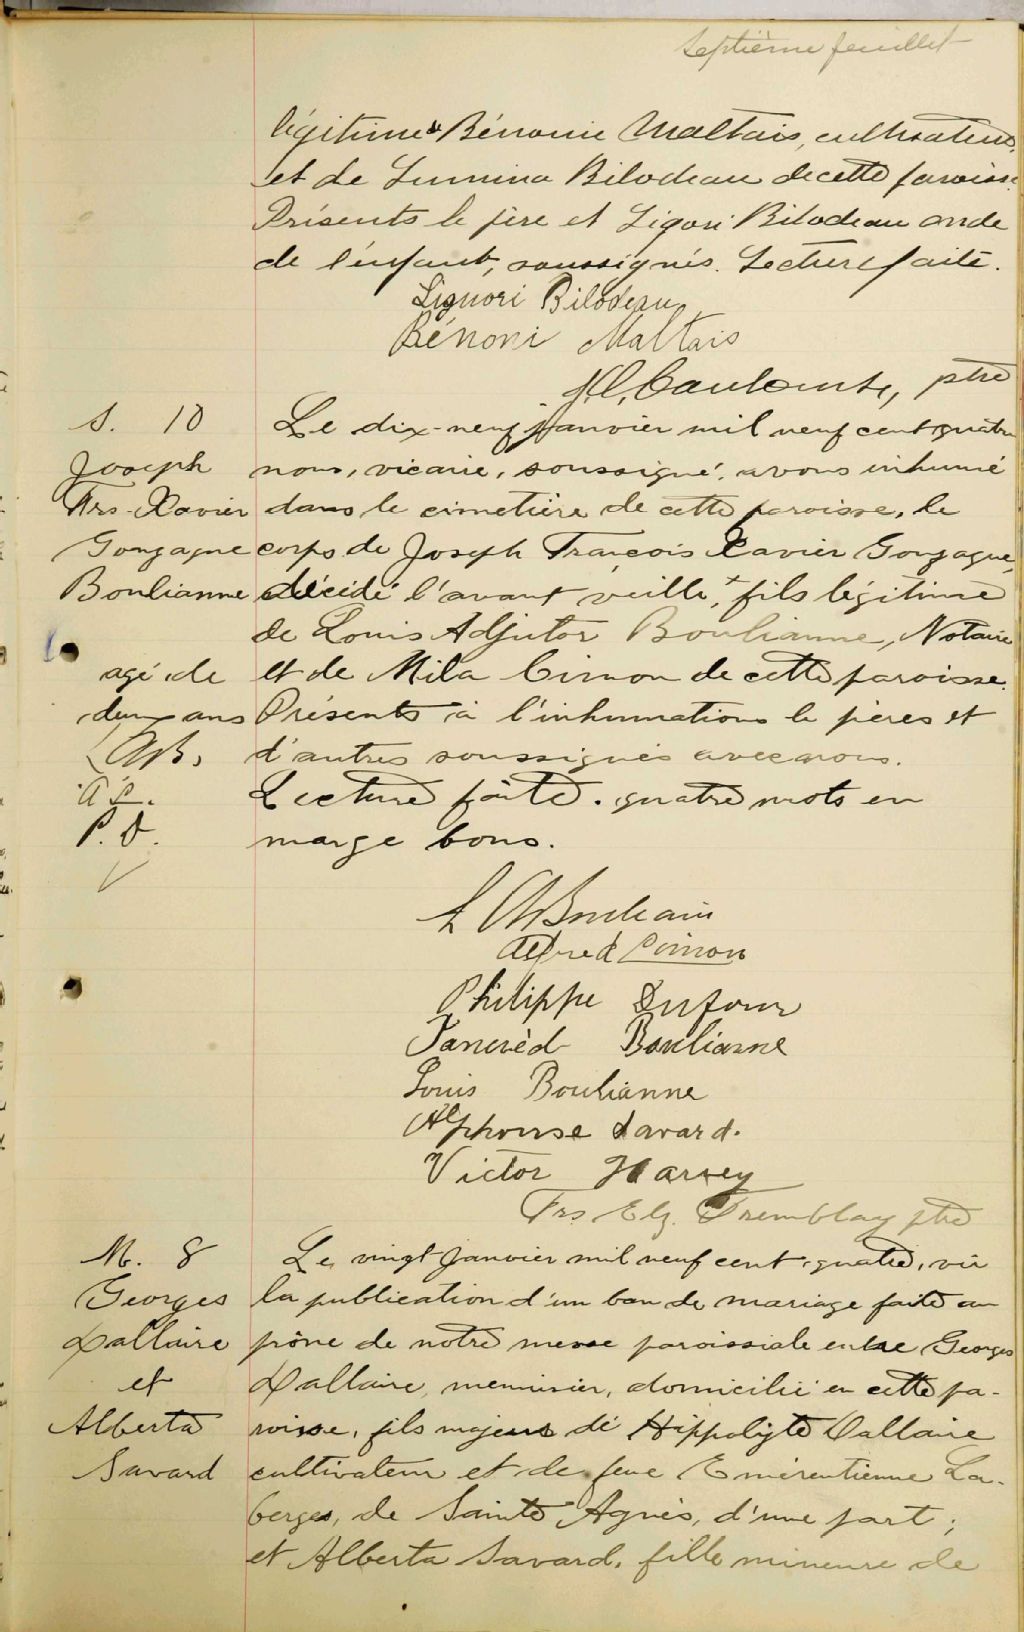 Septième feuillet
légitime de Bénonie Maltais, cultivateur,
et de Lumina Bilodeau de cette paroisse.
Présents le père et Ligori Bilodeau oncle
de l'enfant, soussignés. Lecture faite.
Liguori Bilodeau
Bénoni Maltais
ptre
S. 10
Joseph
Frs-Xavier
Gonzague
Boulianne
agé de
deux ans
L A B.
A C.
P. D.
Le dix-neuf janvier mil neuf cent quatre
nous, vicaire, soussigné, avons inhumé
dans le cimetière de cette paroisse, le
corps de Joseph François Xavier Gonzague,
décédé l'avant veille, + fils légitime
de Louis Adjutor Boulianne, Notaire
et de Mila Cimon de cette paroisse.
Présents à l'inhumation le pères et
d'autres soussignés avec nous.
Lecture faite. quatre mots en
marge bons.
L A Boulianne
Alfred Cimon
Philippe Dufour
Tancrèd Boulianne
Louis Boulianne
Alphonse Savard.
Victor Harvey
Frs. Elz. Tremblay ptre
M. 8
Georges
Dallaire
et
Alberta
Savard
Le vingt janvier mil neuf cent quatre, vu
la publication d'un ban de mariage faite au
prône de notre messe paroissiale entre Georges
Dallaire, menuisier, domicilié en cette pa-
roisse, fils majeur de Hippolyte Dallaire
cultivateur et de feue Emérentienne La-
berge, de Sainte Agnès, d'une part;
et Alberta Savard, fille mineure de